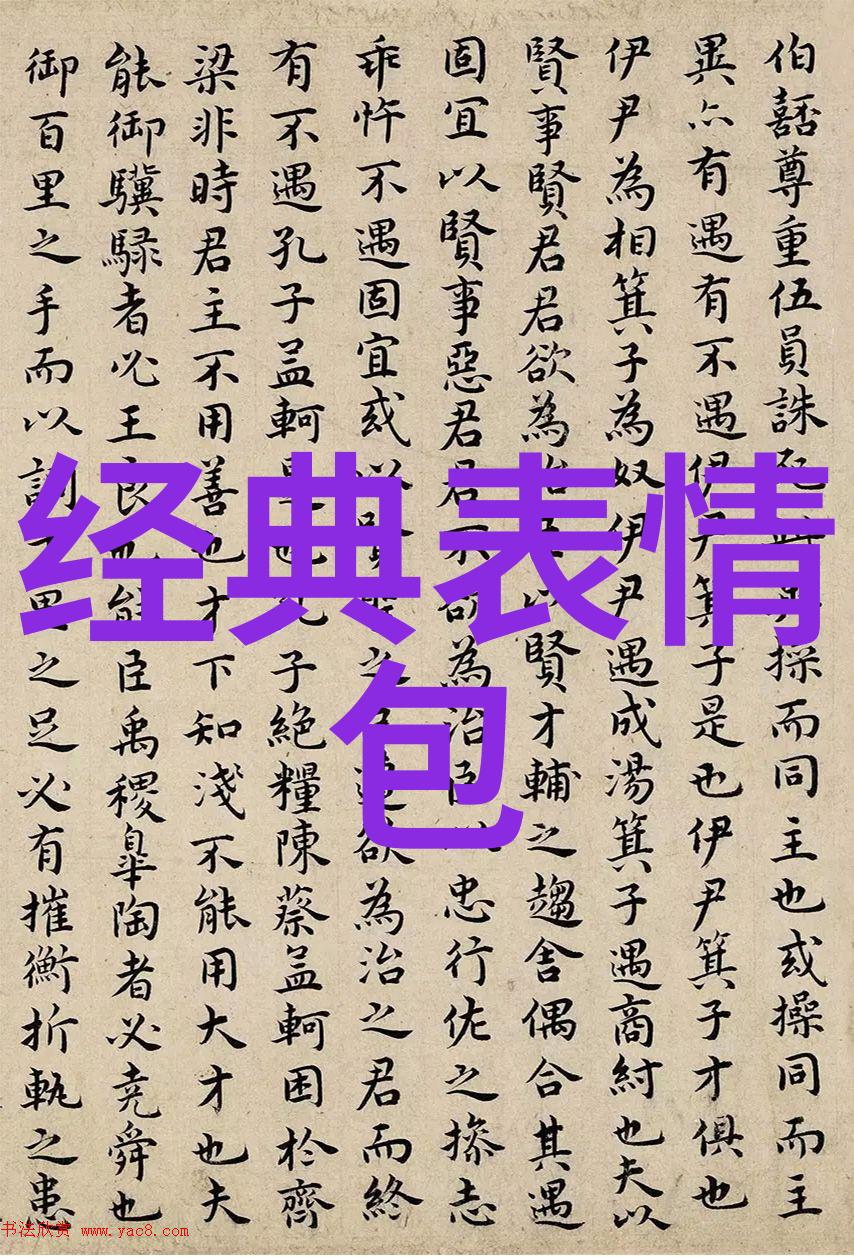 伯嚭尊重伍員誅死操而同主也或操同而主
異亦有遇有不遇伊尹箕子是也伊尹箕子才俱也
伊尹為相箕子為奴伊尹遇成湯箕子遇商紂也夫以
賢事賢君君欲為治以賢才輔之趨舍偶合其遇
固宜以賢事惡君君不欲為治臣以忠行佐之操志
乖忤不遇固宜或以賢之欲為治之君而終
有不遇孔子孟軻是也子絕糧陳蔡孟軻困於齊
梁非時君主不用善也才下知淺不能用大才也夫
能御驥騄者必王良也能臣禹稷皋陶者必堯舜也
御百里之手而以調里之足必有摧衡折軛之患
经典表情
包
书法欣赏 www.yac8.com